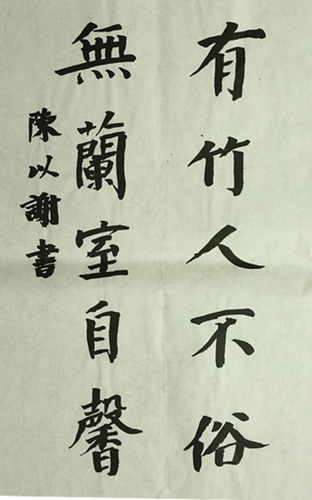 有竹人不俗
無蘭室自馨
陳以謝書